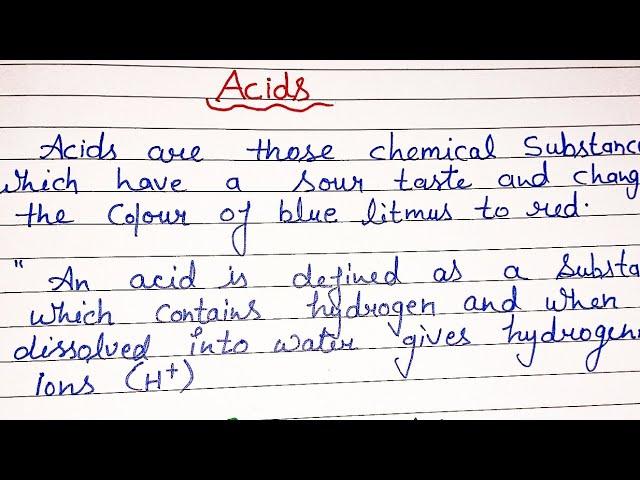 Acids
Acids are those chemical Substanc
which have a sour taste and chang
the Colour of blue litmus to red.
" An acid is defined as a Substa
which contains hydrogen and when
dissolved into water gives hydrogen
Ions (H+)